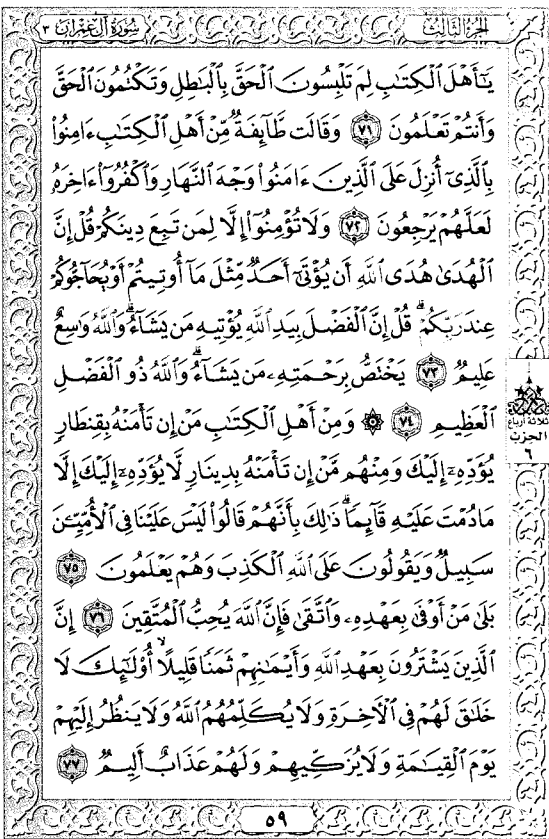 الجزء الثالث
سورة آل عمران ٣
يَـٰٓأَهْلَ ٱلْكِتَـٰبِ لِمَ تَلْبِسُونَ ٱلْحَقَّ بِٱلْبَـٰطِلِ وَتَكْتُمُونَ ٱلْحَقَّ
وَأَنتُمْ تَعْلَمُونَ ٧١ وَقَالَت طَّآئِفَةٌ مِّنْ أَهْلِ ٱلْكِتَـٰبِ ءَامِنُوا۟
بِٱلَّذِىٓ أُنزِلَ عَلَى ٱلَّذِينَ ءَامَنُوا۟ وَجْهَ ٱلنَّهَارِ وَٱكْفُرُوٓا۟ ءَاخِرَهُۥ
لَعَلَّهُمْ يَرْجِعُونَ ٧٢ وَلَا تُؤْمِنُوٓا۟ إِلَّا لِمَن تَبِعَ دِينَكُمْ قُلْ إِنَّ
ٱلْهُدَىٰ هُدَى ٱللَّهِ أَن يُؤْتَىٰٓ أَحَدٌ مِّثْلَ مَآ أُوتِيتُمْ أَوْ يُحَآجُّوكُمْ
عِندَ رَبِّكُمْ ۗ قُلْ إِنَّ ٱلْفَضْلَ بِيَدِ ٱللَّهِ يُؤْتِيهِ مَن يَشَآءُ ۗ وَٱللَّهُ وَٰسِعٌ
عَلِيمٌ ٧٣ يَخْتَصُّ بِرَحْمَتِهِۦ مَن يَشَآءُ ۗ وَٱللَّهُ ذُو ٱلْفَضْلِ
ٱلْعَظِيمِ ٧٤ ۞ وَمِنْ أَهْلِ ٱلْكِتَـٰبِ مَنْ إِن تَأْمَنْهُ بِقِنطَارٍ
يُؤَدِّهِۦٓ إِلَيْكَ وَمِنْهُم مَّنْ إِن تَأْمَنْهُ بِدِينَارٍ لَّا يُؤَدِّهِۦٓ إِلَيْكَ إِلَّا
مَا دُمْتَ عَلَيْهِ قَآئِمًا ۗ ذَٰلِكَ بِأَنَّهُمْ قَالُوا۟ لَيْسَ عَلَيْنَا فِى ٱلْأُمِّيِّـۧنَ
سَبِيلٌ وَيَقُولُونَ عَلَى ٱللَّهِ ٱلْكَذِبَ وَهُمْ يَعْلَمُونَ ٧٥
بَلَىٰ مَنْ أَوْفَىٰ بِعَهْدِهِۦ وَٱتَّقَىٰ فَإِنَّ ٱللَّهَ يُحِبُّ ٱلْمُتَّقِينَ ٧٦ إِنَّ
ٱلَّذِينَ يَشْتَرُونَ بِعَهْدِ ٱللَّهِ وَأَيْمَـٰنِهِمْ ثَمَنًا قَلِيلًا ۙ أُو۟لَـٰٓئِكَ لَا
خَلَـٰقَ لَهُمْ فِى ٱلْـَٔاخِرَةِ وَلَا يُكَلِّمُهُمُ ٱللَّهُ وَلَا يَنظُرُ إِلَيْهِمْ
يَوْمَ ٱلْقِيَـٰمَةِ وَلَا يُزَكِّيهِمْ وَلَهُمْ عَذَابٌ أَلِيمٌ ٧٧
ثلاثة أرباع
الحزب
٦
٥٩